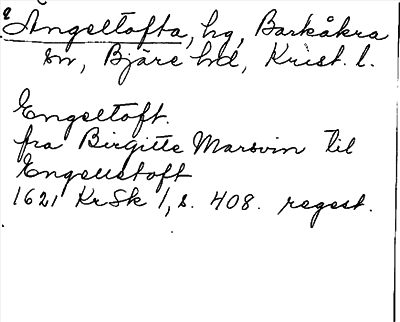 Ängeltofta, hg, Barkåkra
sn, Bjäre hd, Krist. l.
Engeltoft.
fra Birgitte Marsvin til
Engelstoft
1621 KrSk 1, s. 408. regest.